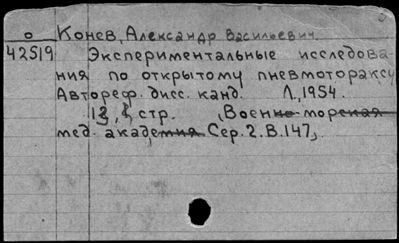 о Конев, Александр Васильевич.
42519 Экспериментальные исследова-
ния по открытому пневмотораксу
Автореф. дисс. канд. Л., 1954.
стр. Военно морская
мед. академия Сер. 2. В. 147,